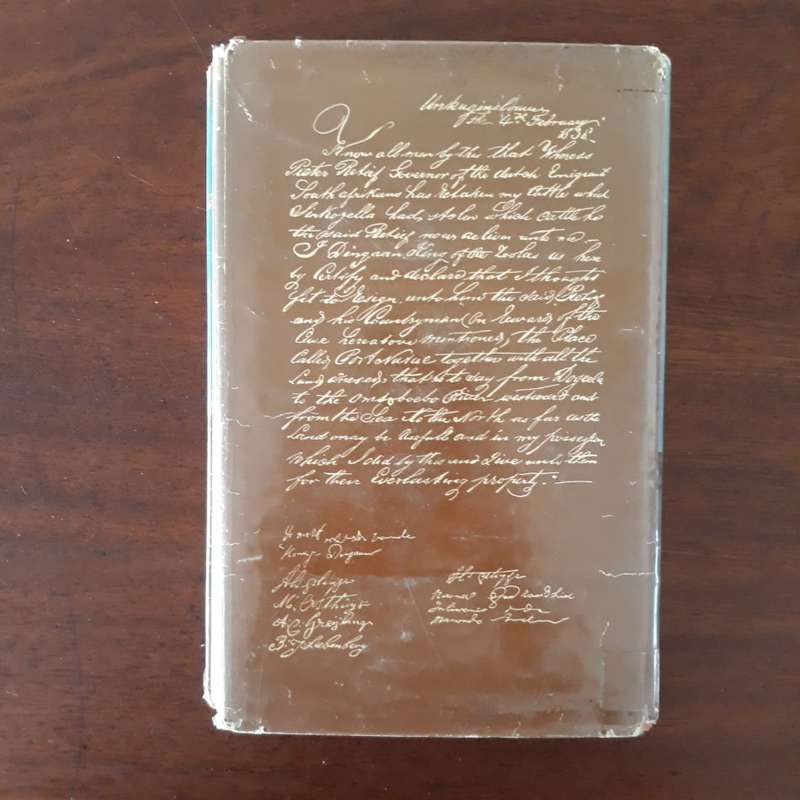 Unkunginsloave
the 4th February
1838
Know all men by this that Whereas
Pieter Retief Governor of the dutch Emigrant
South afrikans has Retaken my Cattle which
Sinkonyella had stolen which cattle he
the said Retief now deliver unto me
I Dingaan King of the Zoolas as here
by Certify and declare that I thought
fit to Resign unto him the said Retief
and his Countryman (on Reward of the
Case hereabove mentioned) the Place
Called Port Natal together with all the
Land annexed that is to say from Dogeela
to the Omsoboebo River westward and
from the Sea to the North as far as the
Land may be Usefull and in my possession
Which I did by this and Give unto them
for their Everlasting property.
de merk
Konig Dingaan
M. Oosthuyse
A C Greyling
B J Liebenberg